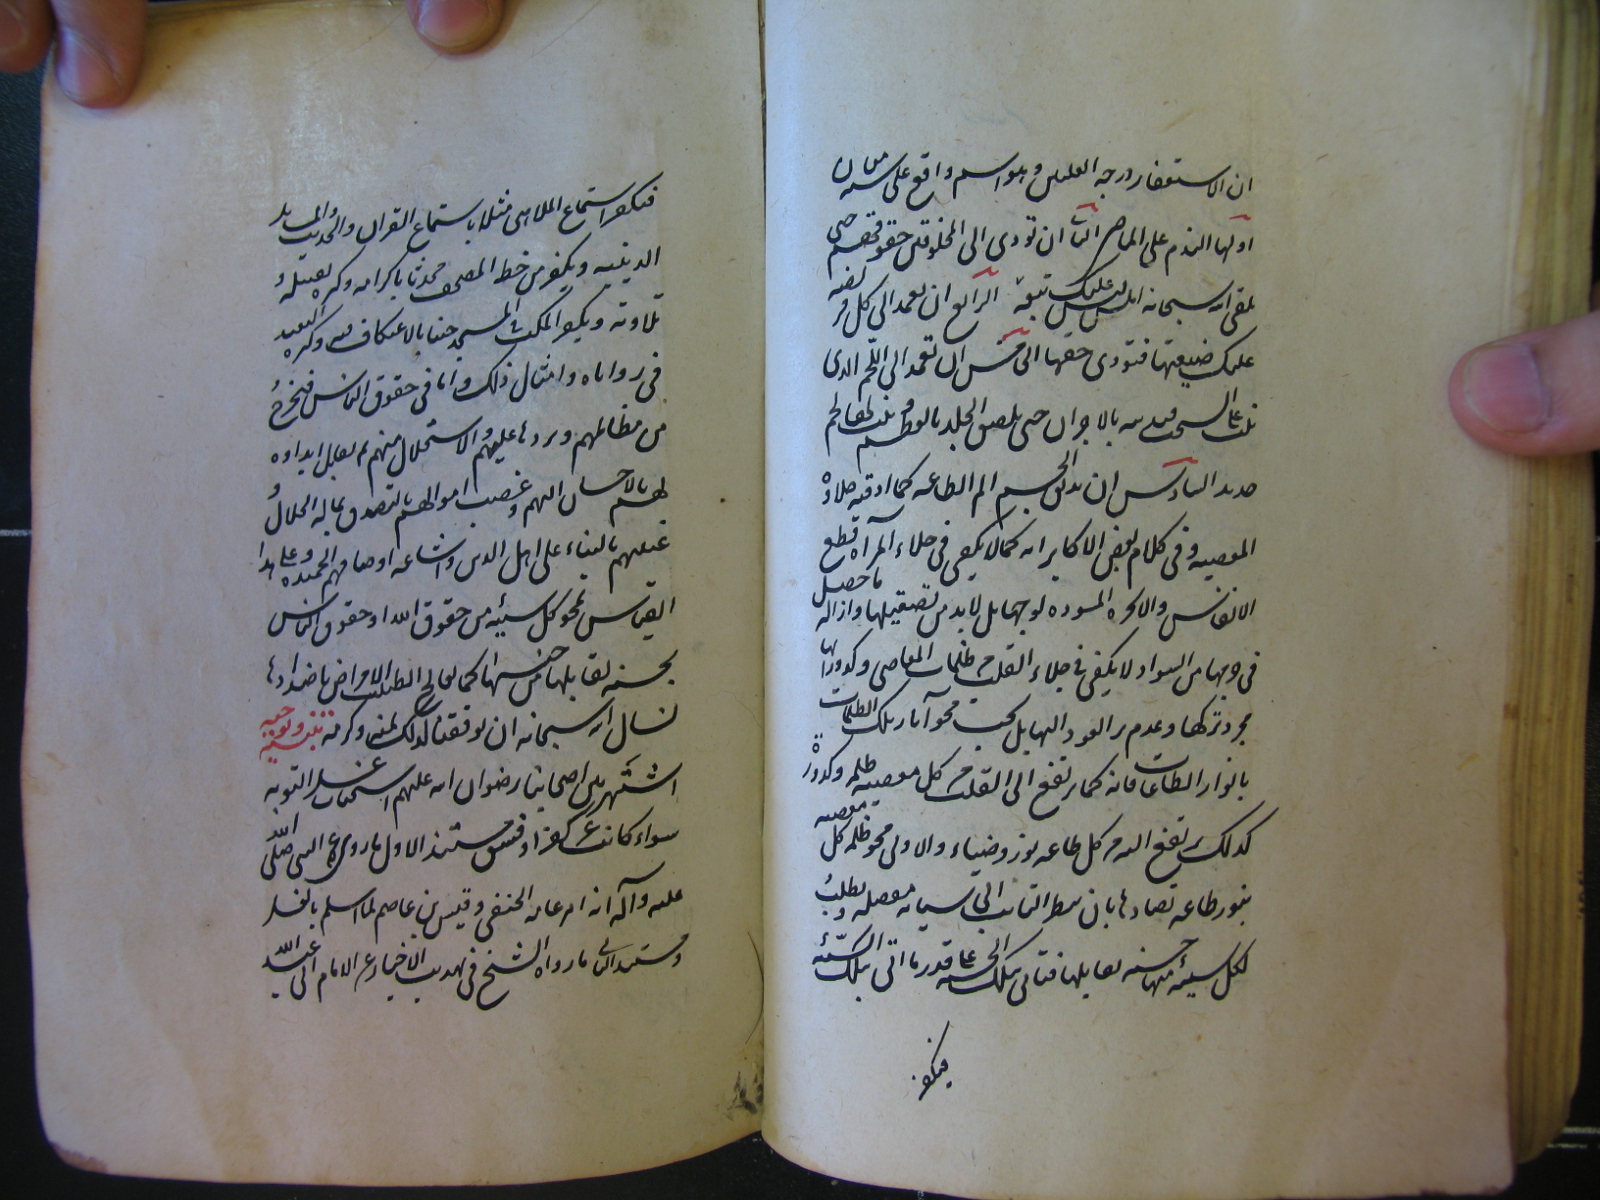 ان الاستغفار درجة العليين وهو اسم واقع على ستة معان
اولها الندم على ما مضى الثالث ان تودى الى المخلوقين حقوقهم حتى
تلقى الله سبحانه املس ليس عليك تبعة الرابع ان تعمد الى كل فريضة
عليك ضيعتها فتودى حقها الخامس ان تعمد الى اللحم الذى
نبت على السحت فتذيبه بالاحزان حتى يلصق الجلد بالعظم وينبت بينهما لحم
جديد السادس ان تذيق الجسم الم الطاعة كما اذقته حلاوة
المعصية وفى كلام بعض الاكابر انه كما لا يكفى فى جلاء المرآة قطع
الانفاس والابخرة المسودة لوجهها بل لابد من تصقيلها وازالة ما حصل
فى وجهها من السواد لا يكفى فى جلاء القلب من ظلمات المعاصى وكدوراتها
مجرد تركها وعدم العود اليها بل يجب محو آثار تلك الظلمات
بانوار الطاعات فانه كما يرتفع الى القلب من كل معصية ظلمة وكدورة
كذلك يرتفع اليه من كل طاعة نور وضياء والاولى محو ظلمة كل معصية
بنور طاعة تضادها بان ينظر التائب الى سيئاته مفصلة ويطلب
لكل سيئة منها حسنة تقابلها فيأتى بتلك الحسنة على قدر ما اتى بتلك السيئة
فيكفر
فيكفر استماع الملاهى مثلا باستماع القرآن والحديث والمسائل
الدينية ويكفر مس خط المصحف محدثا باكرامه وكثرة تقبيله و
تلاوته ويكفر المكث فى المسجد جنبا بالاعتكاف فيه وكثرة التعبد
فى زواياه وامثال ذلك واما فى حقوق الناس فيخرج
من مظالمهم ويردها عليهم والاستحلال منهم ثم يقابل ايذاءه
لهم بالاحسان اليهم وغصب اموالهم بالتصدق بماله الحلال و
غيبتهم بالثناء على اهل الدين واشاعة اوصافهم الحميدة وعلى هذا
القياس يمحو كل سيئة من حقوق الله او حقوق الناس
بحسنة تقابلها من جنسها كما يعالج الطبيب الامراض باضدادها
نسأل الله سبحانه ان يوفقنا لذلك بمنه وكرمه تنبيه وتوجيه
اشتهر بين اصحابنا رضوان الله عليهم استحباب غسل التوبة
سواء كانت عن كفر او فسق ومستند الاول ما روى عن النبى صلى الله
عليه وآله انه امر ثمامة الحنفى وقيس بن عاصم لما اسلم بالغسل
ومستند الثانى ما رواه الشيخ فى تهذيب الاخبار عن الامام ابى عبد الله